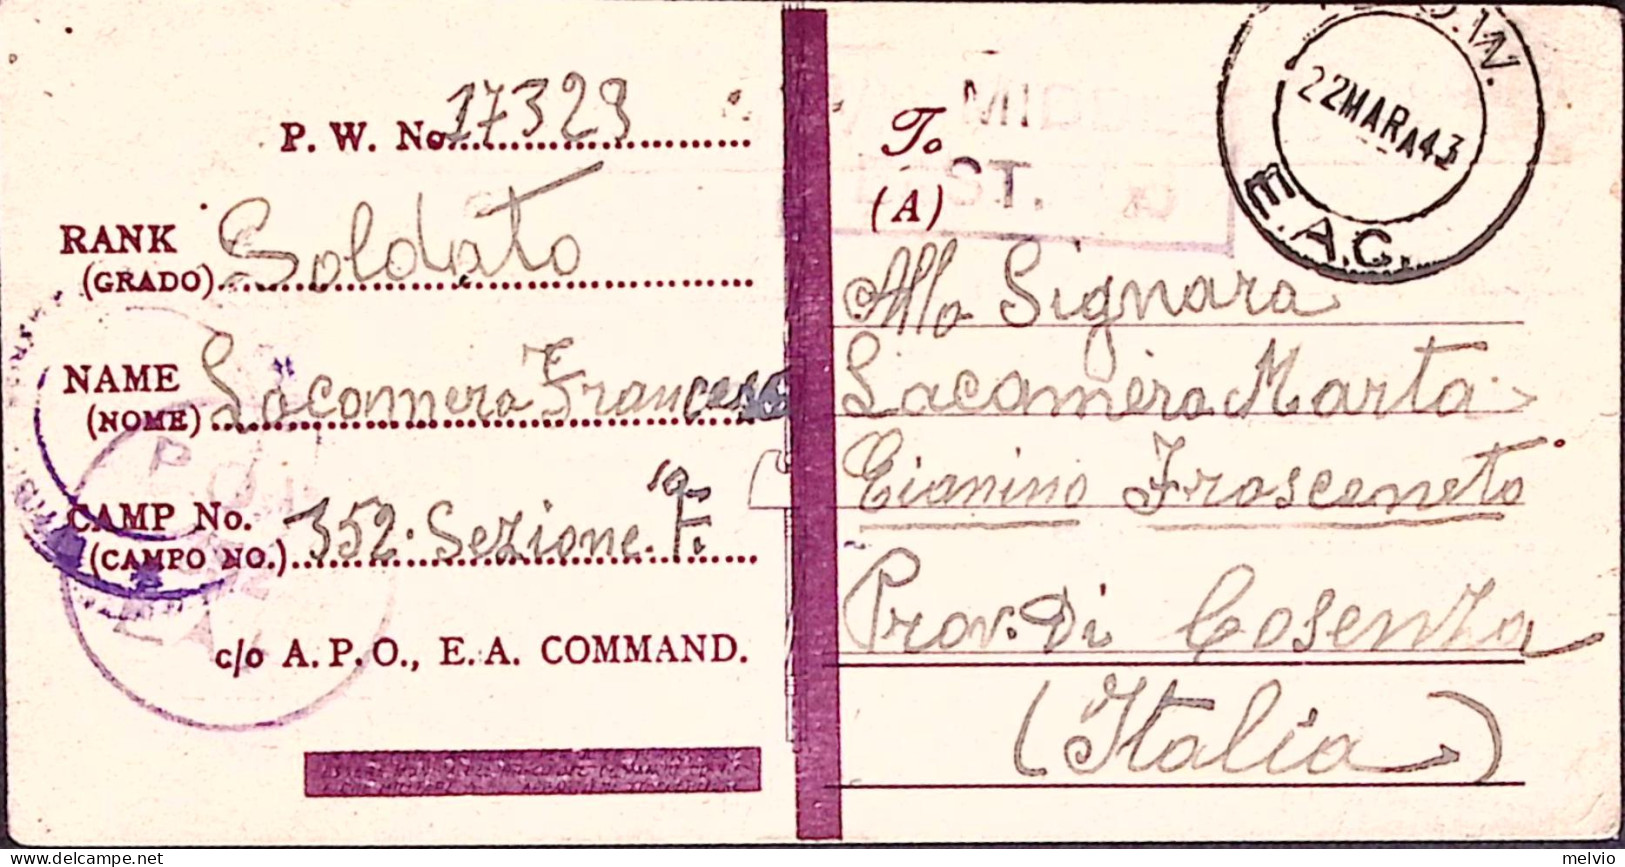 P. W. No. 17329
RANK
(GRADO) Soldato
NAME
(NOME) Lacamera Francesco
CAMP No.
(CAMPO NO.) 352. Sezione. F.
c/o A. P. O., E. A. COMMAND.
To
(A)
22 MAR A 43
E.A.C.
Alla Signara
Lacamera Marta
Eianino Frascaneto
Prov. Di Cosenza
(Italia)
melvio